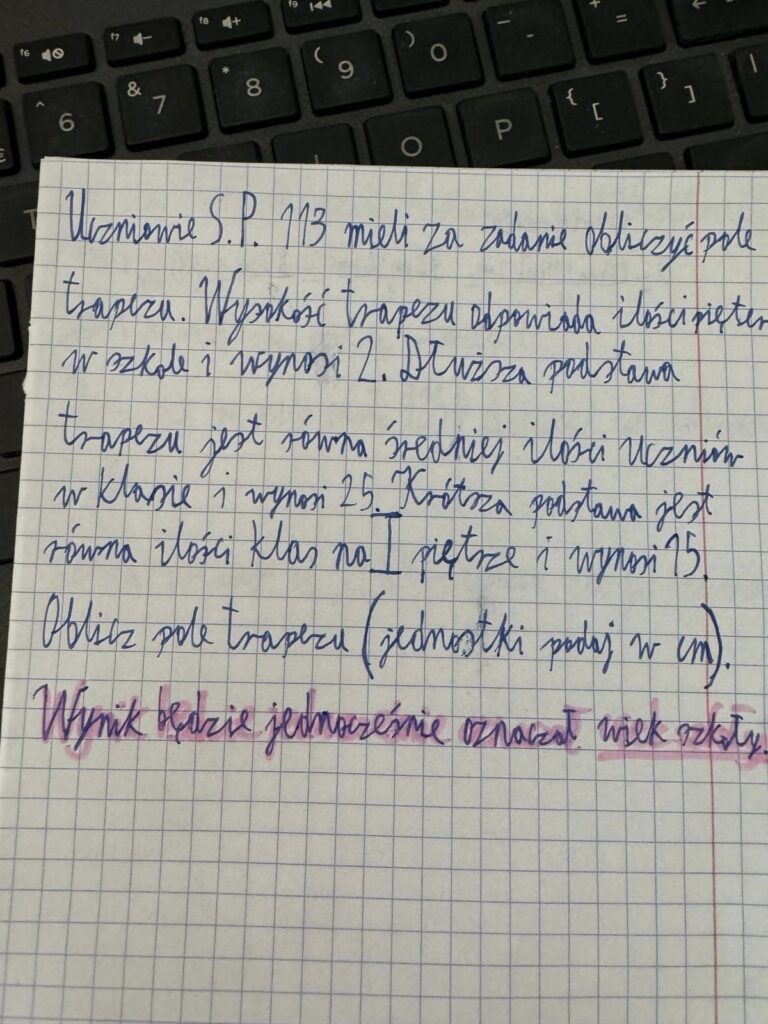 f6
f7
f8
f9
^ 6
& 7
* 8
( 9
) 0
- -
+ =
O
P
{ [
} ]
Uczniowie S.P. 113 mieli za zadanie obliczyć pole
trapezu. Wysokość trapezu odpowiada ilości pięter
w szkole i wynosi 2. Dłuższa podstawa
trapezu jest równa średniej ilości uczniów
w klasie i wynosi 25. Krótsza podstawa jest
równa ilości klas na I piętrze i wynosi 15.
Oblicz pole trapezu (jednostki podaj w cm).
Wynik będzie jednocześnie oznaczał wiek szkoły.